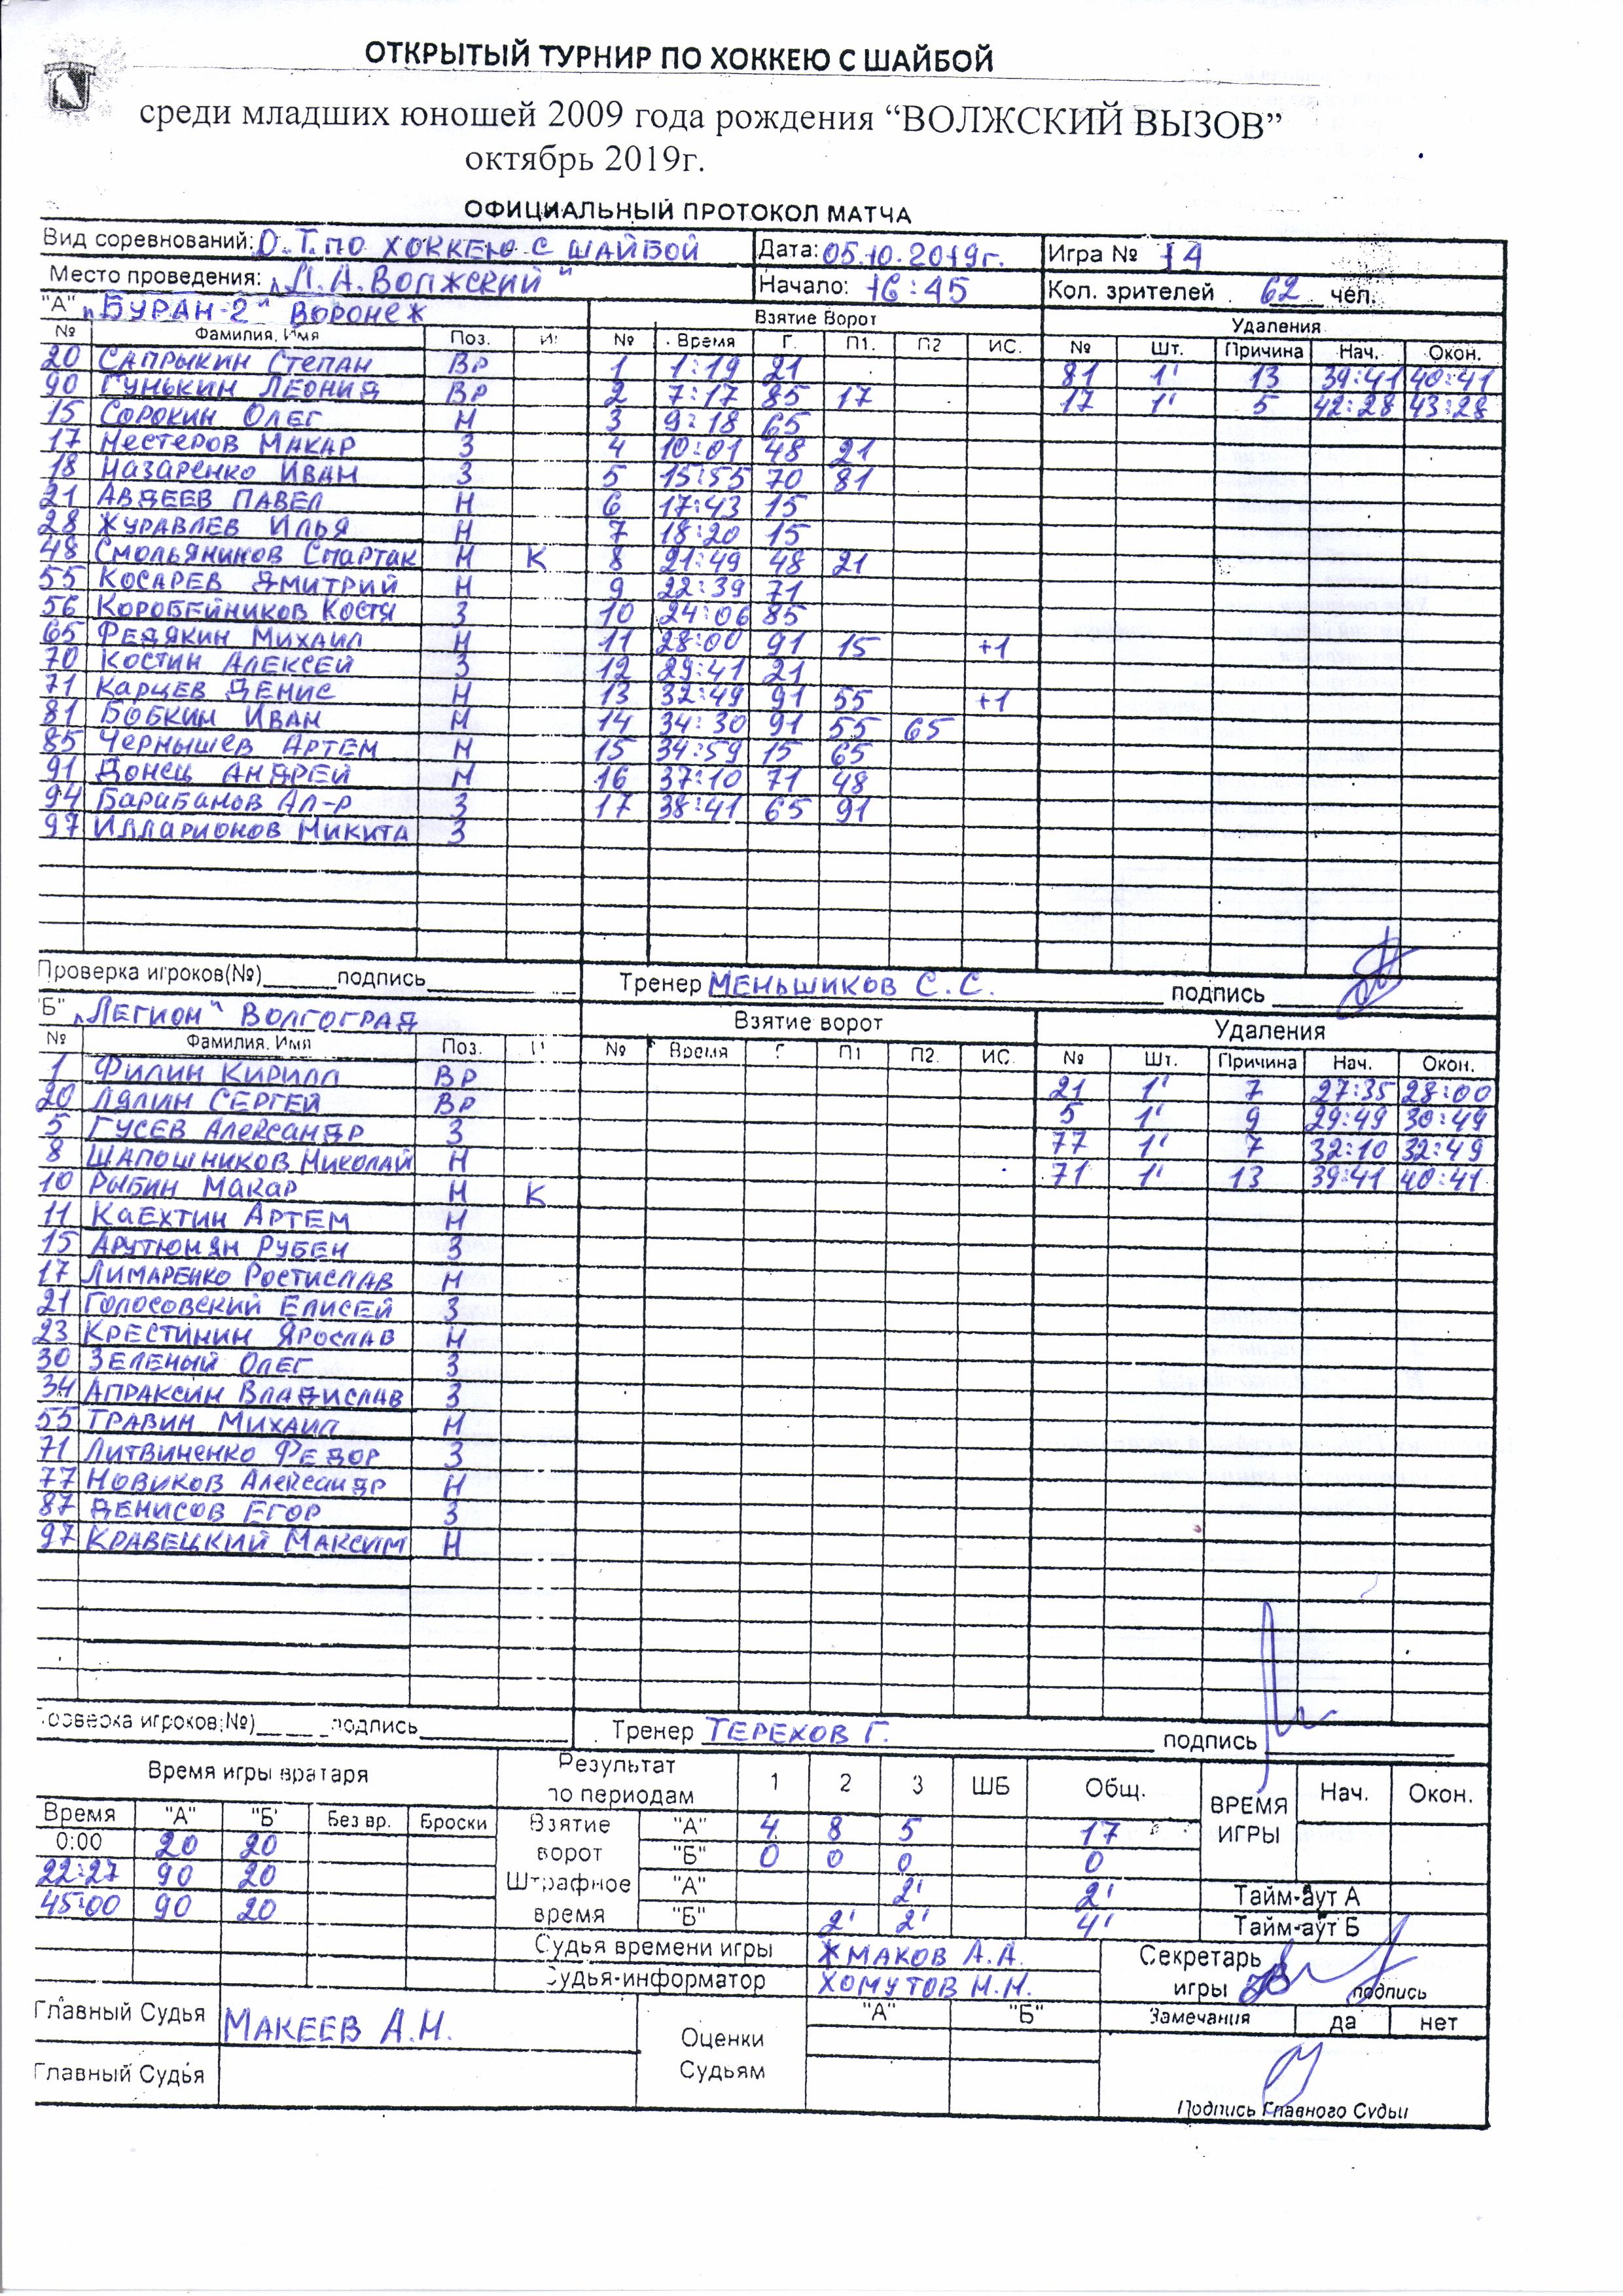 ОТКРЫТЫЙ ТУРНИР ПО ХОККЕЮ С ШАЙБОЙ
среди младших юношей 2009 года рождения “ВОЛЖСКИЙ ВЫЗОВ”
октябрь 2019г.
ОФИЦИАЛЬНЫЙ ПРОТОКОЛ МАТЧА
Вид соревнований: О.Т. ПО ХОККЕЮ С ШАЙБОЙ Дата: 05.10.2019г. Игра № 14
Место проведения: „Л.А. ВОЛЖСКИЙ" Начало: 16:45 Кол. зрителей 62 чел.
"А" „БУРАН-2" ВОРОНЕЖ Взятие Ворот Удаления
№ Фамилия, Имя Поз. И № Время Г. П1. П2 ИС. № Шт. Причина Нач. Окон.
20 САПРЫКИН СТЕПАН ВР 1 1:19 21 81 1' 13 39:41 40:41
90 ГУНЬКИН ЛЕОНИД ВР 2 7:17 85 17 17 1' 5 42:28 43:28
15 СОРОКИН ОЛЕГ Н 3 9:18 65
17 НЕСТЕРОВ МАКАР З 4 10:01 48 21
18 НАЗАРЕНКО ИВАН З 5 15:55 70 81
21 АВДЕЕВ ПАВЕЛ Н 6 17:43 15
28 ЖУРАВЛЕВ ИЛЬЯ Н 7 18:20 15
48 СМОЛЬЯНИНОВ СПАРТАК Н К 8 21:49 48 21
55 КОСАРЕВ ДМИТРИЙ Н 9 22:39 71
56 КОРОБЕЙНИКОВ КОСТЯ З 10 24:06 85
65 ФЕДЯКИН МИХАИЛ Н 11 28:00 91 15 +1
70 КОСТИН АЛЕКСЕЙ З 12 29:41 21
71 КАРЦЕВ ДЕНИС Н 13 32:49 91 55 +1
81 БОБКИН ИВАН Н 14 34:30 91 55 65
85 ЧЕРНЫШЕВ АРТЕМ Н 15 34:59 15 65
91 ДОНЕЦ АНДРЕЙ Н 16 37:10 71 48
94 БАРАБАНОВ АЛ-Р З 17 38:41 65 91
97 ИЛЛАРИОНОВ НИКИТА З
Проверка игроков(№)______подпись____________ Тренер МЕНЬШИКОВ С.С. подпись
"Б" „ЛЕГИОН" ВОЛГОГРАД Взятие ворот Удаления
№ Фамилия, Имя Поз. И № Время Г П1 П2. ИС. № Шт. Причина Нач. Окон.
1 ФИЛИН КИРИЛЛ ВР 21 1' 7 27:35 28:00
20 ЛЯЛИН СЕРГЕЙ ВР 5 1' 9 29:49 30:49
5 ГУСЕВ АЛЕКСАНДР З 77 1' 7 32:10 32:49
8 ШАПОШНИКОВ НИКОЛАЙ Н 71 1' 13 39:41 40:41
10 РЫБИН МАКАР Н К
11 КАЕХТИН АРТЕМ Н
15 АРУТЮНЯН РУБЕН З
17 ЛИМАРЕНКО РОСТИСЛАВ Н
21 ГОЛОСОВСКИЙ ЕЛИСЕЙ З
23 КРЕСТИНИН ЯРОСЛАВ Н
30 ЗЕЛЕНЫЙ ОЛЕГ З
34 АПРАКСИН ВЛАДИСЛАВ З
55 ТРАВИН МИХАИЛ Н
71 ЛИТВИНЕНКО ФЕДОР З
77 НОВИКОВ АЛЕКСАНДР Н
87 ДЕНИСОВ ЕГОР З
97 КРАВЕЦКИЙ МАКСИМ Н
Проверка игроков(№)______подпись____________ Тренер ТЕРЕХОВ Г. подпись
Время игры вратаря Результат по периодам 1 2 3 ШБ Общ. ВРЕМЯ ИГРЫ Нач. Окон.
Время "А" "Б" Без вр. Броски Взятие ворот "А" 4 8 5 17
0:00 20 20 "Б" 0 0 0 0
22:27 90 20 Штрафное время "А" 2' 2' Тайм-аут А
45:00 90 20 "Б" 2' 2' 4' Тайм-аут Б
Судья времени игры ЖМАКОВ А.А. Секретарь игры подпись
Судья-информатор ХОМУТОВ Н.Н.
Главный Судья МАКЕЕВ А.Н. Оценки Судьям "А" "Б" Замечания да нет
Главный Судья
Подпись Главного Судьи